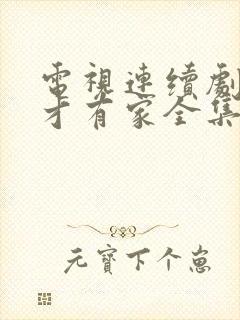 電視連續劇
才有家全集
元寶下个崽